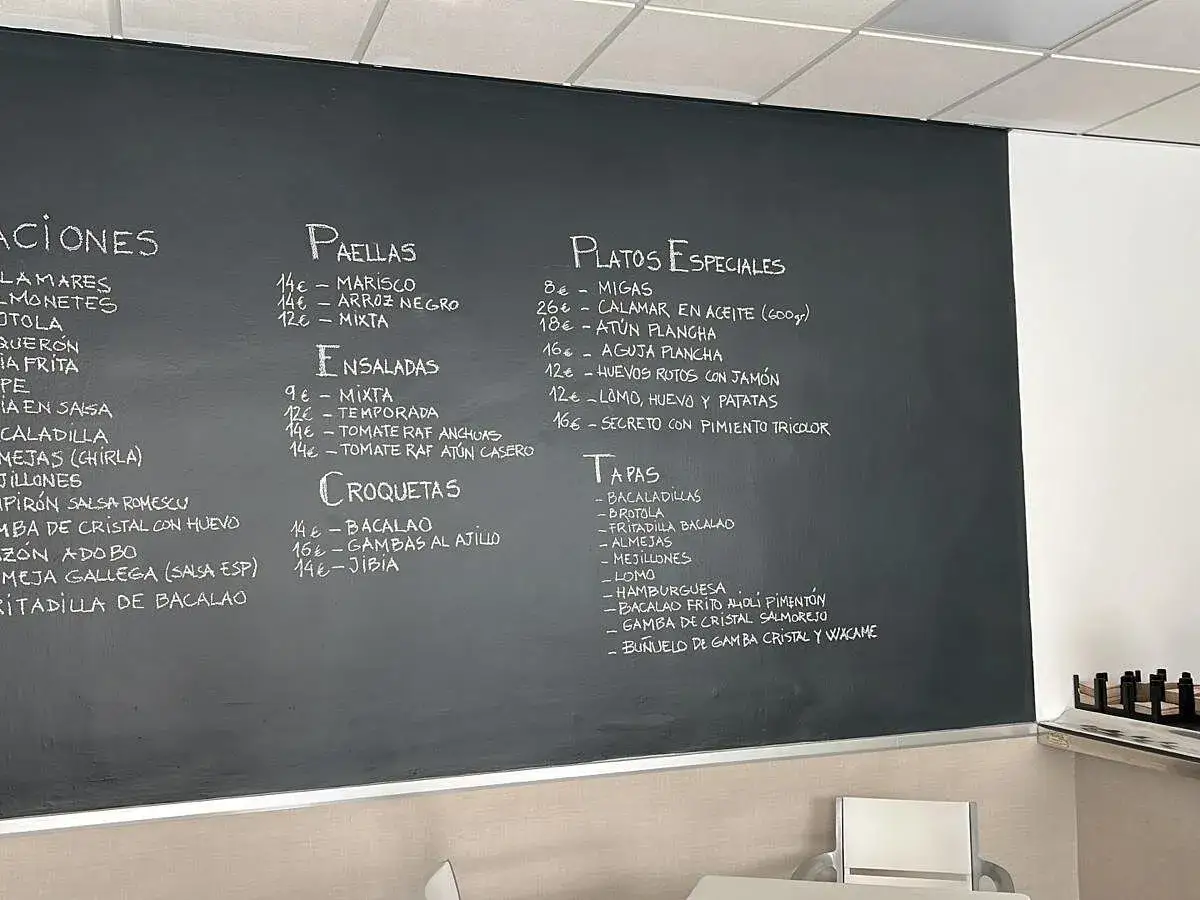 ACIONES
LAMARES
LMONETES
OTOLA
QUERÓN
IA FRITA
PE
IA EN SALSA
CALADILLA
MEJAS (CHIRLA)
JILLONES
IPIRÓN SALSA ROMESCU
MBA DE CRISTAL CON HUEVO
ZÓN ADOBO
MEJA GALLEGA (SALSA ESP)
RITADILLA DE BACALAO
PAELLAS
14€ - MARISCO
14€ - ARROZ NEGRO
12€ - MIXTA
ENSALADAS
9€ - MIXTA
12€ - TEMPORADA
14€ - TOMATE RAF ANCHOAS
14€ - TOMATE RAF ATÚN CASERO
CROQUETAS
14€ - BACALAO
16€ - GAMBAS AL AJILLO
14€ - JIBIA
PLATOS ESPECIALES
8€ - MIGAS
26€ - CALAMAR EN ACEITE (600gr)
18€ - ATÚN PLANCHA
16€ - AGUJA PLANCHA
12€ - HUEVOS ROTOS CON JAMÓN
12€ - LOMO, HUEVO Y PATATAS
16€ - SECRETO CON PIMIENTO TRICOLOR
TAPAS
- BACALADILLAS
- BROTOLA
- FRITADILLA BACALAO
- ALMEJAS
- MEJILLONES
- LOMO
- HAMBURGUESA
- BACALAO FRITO ALIOLI PIMENTÓN
- GAMBA DE CRISTAL SALMOREJO
- BUÑUELO DE GAMBA CRISTAL Y WACAME